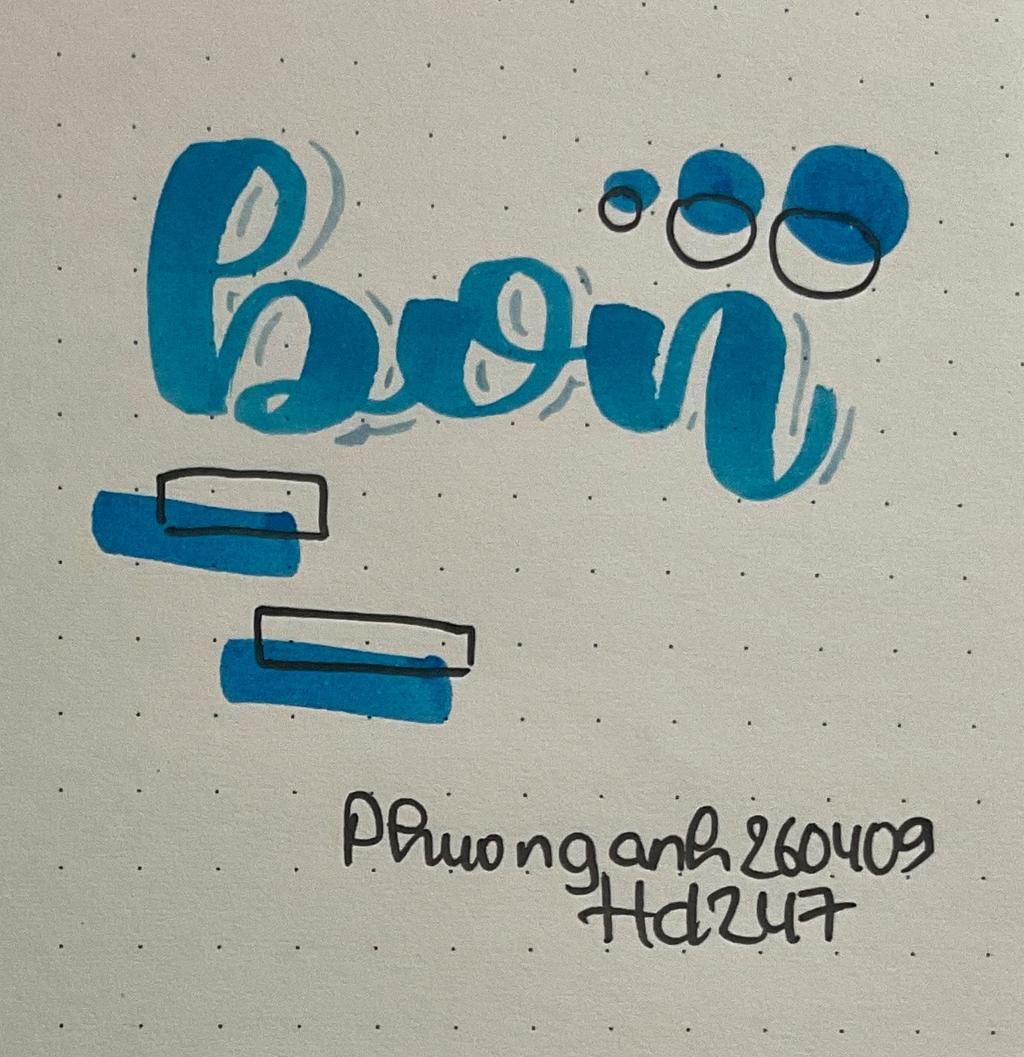 bon
Phuonganh260409
Hd247